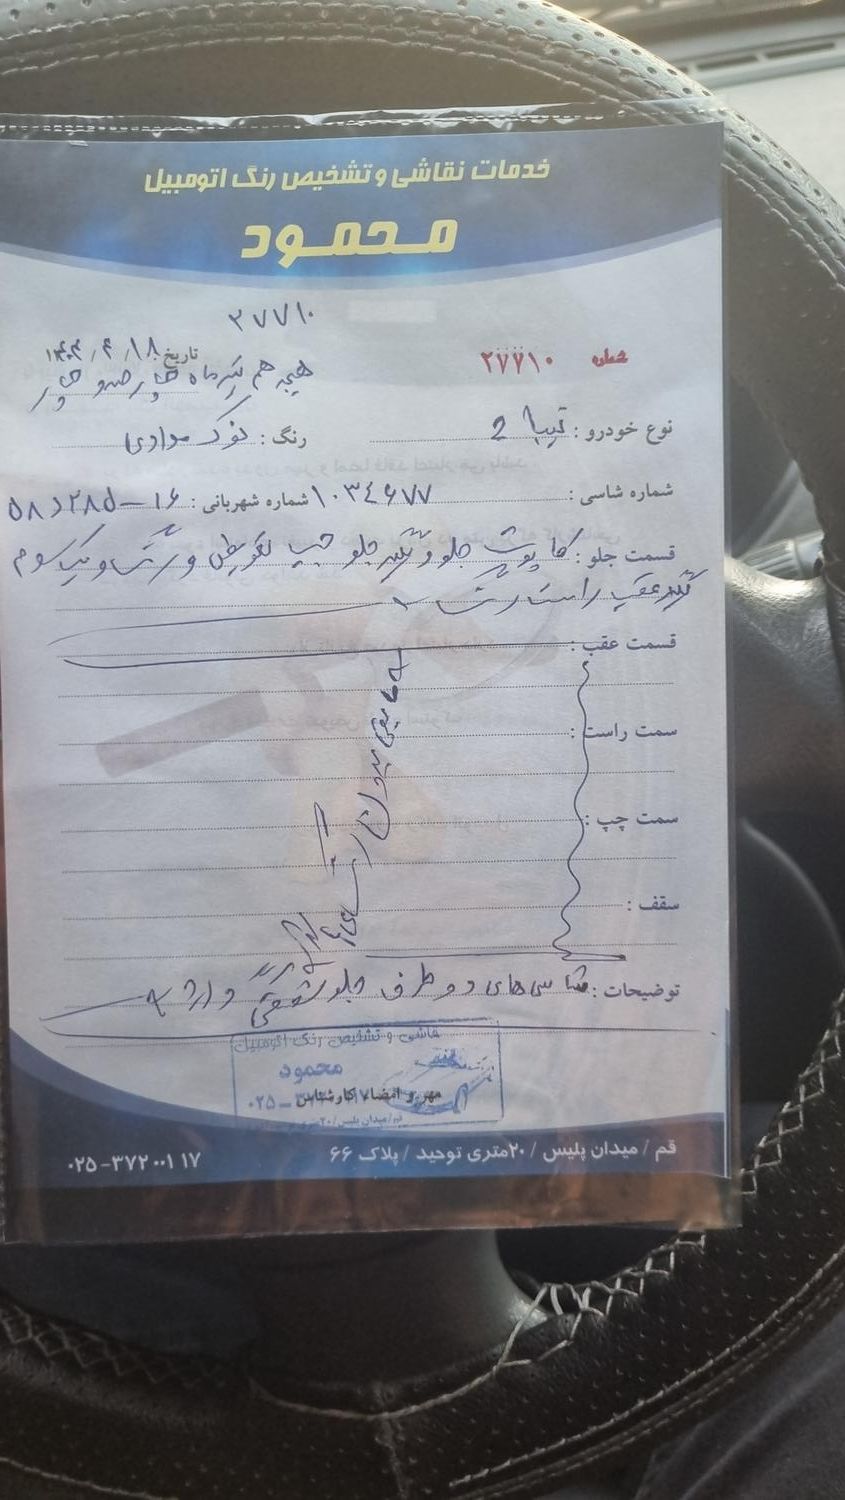 خدمات نقاشی و تشخیص رنگ اتومبیل
محمود
۲۷۷۱۰
شماره ۲۷۷۱۰
تاریخ ۱۴۰۴/۴/۱۸
هیجدهم تیرماه چهارصدو چهار
نوع خودرو : تیبا 2
رنگ : نوک مدادی
شماره شاسی : ۱۰۳۴۶۷۷
شماره شهربانی : ۱۶ - ۵۸د۲۸۵
قسمت جلو : کاپوت جلو و گلگیر جلو چپ تعویض و رنگ و یک سوم
گلگیر عقب راست رنگ
قسمت عقب :
سمت راست :
سمت چپ :
سقف :
مابقی بدون رنگ
توضیحات : شاسی های دو طرف جلو
نقاشی و تشخیص رنگ اتومبیل
محمود
مهر و امضاء کارشناس
قم / میدان پلیس / ۲۰متری توحید / پلاک ۶۶
۰۲۵-۳۷۲۰۰۱۱۷